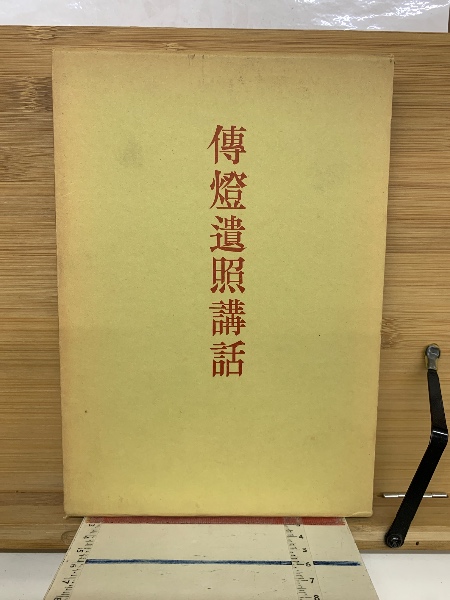 傳燈遺照講話